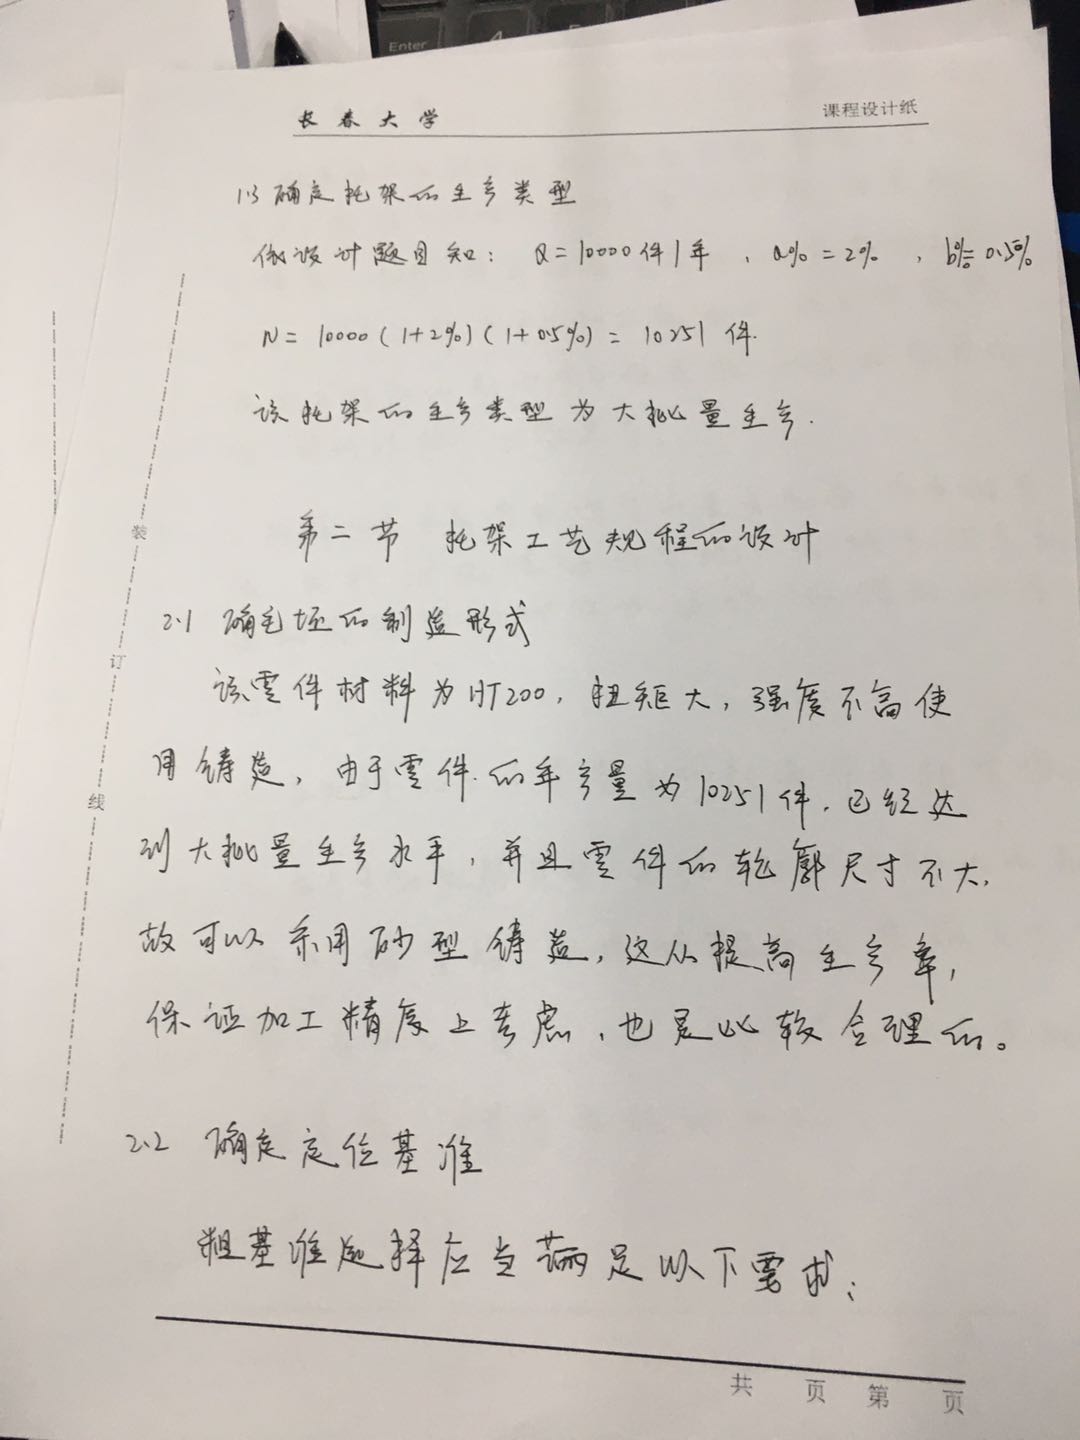 Enter
长春大学 课程设计纸
1.3 确定托架的生产类型
依设计题目知： Q=10000件/年 ，a%=2% ，b%=0.5%
N= 10000(1+2%)(1+0.5%)= 10251件.
该托架的生产类型为大批量生产.
第二节 托架工艺规程的设计
2.1 确毛坯的制造形式
该零件材料为HT200，扭矩大，强度不高使
用铸造，由于零件的年产量为10251件，已经达
到大批量生产水平，并且零件的轮廓尺寸不大，
故可以采用砂型铸造，这从提高生产率，
保证加工精度上考虑，也是比较合理的。
2.2 确定定位基准
粗基准选择应当满足以下要求：
装
订
线
共 页 第 页